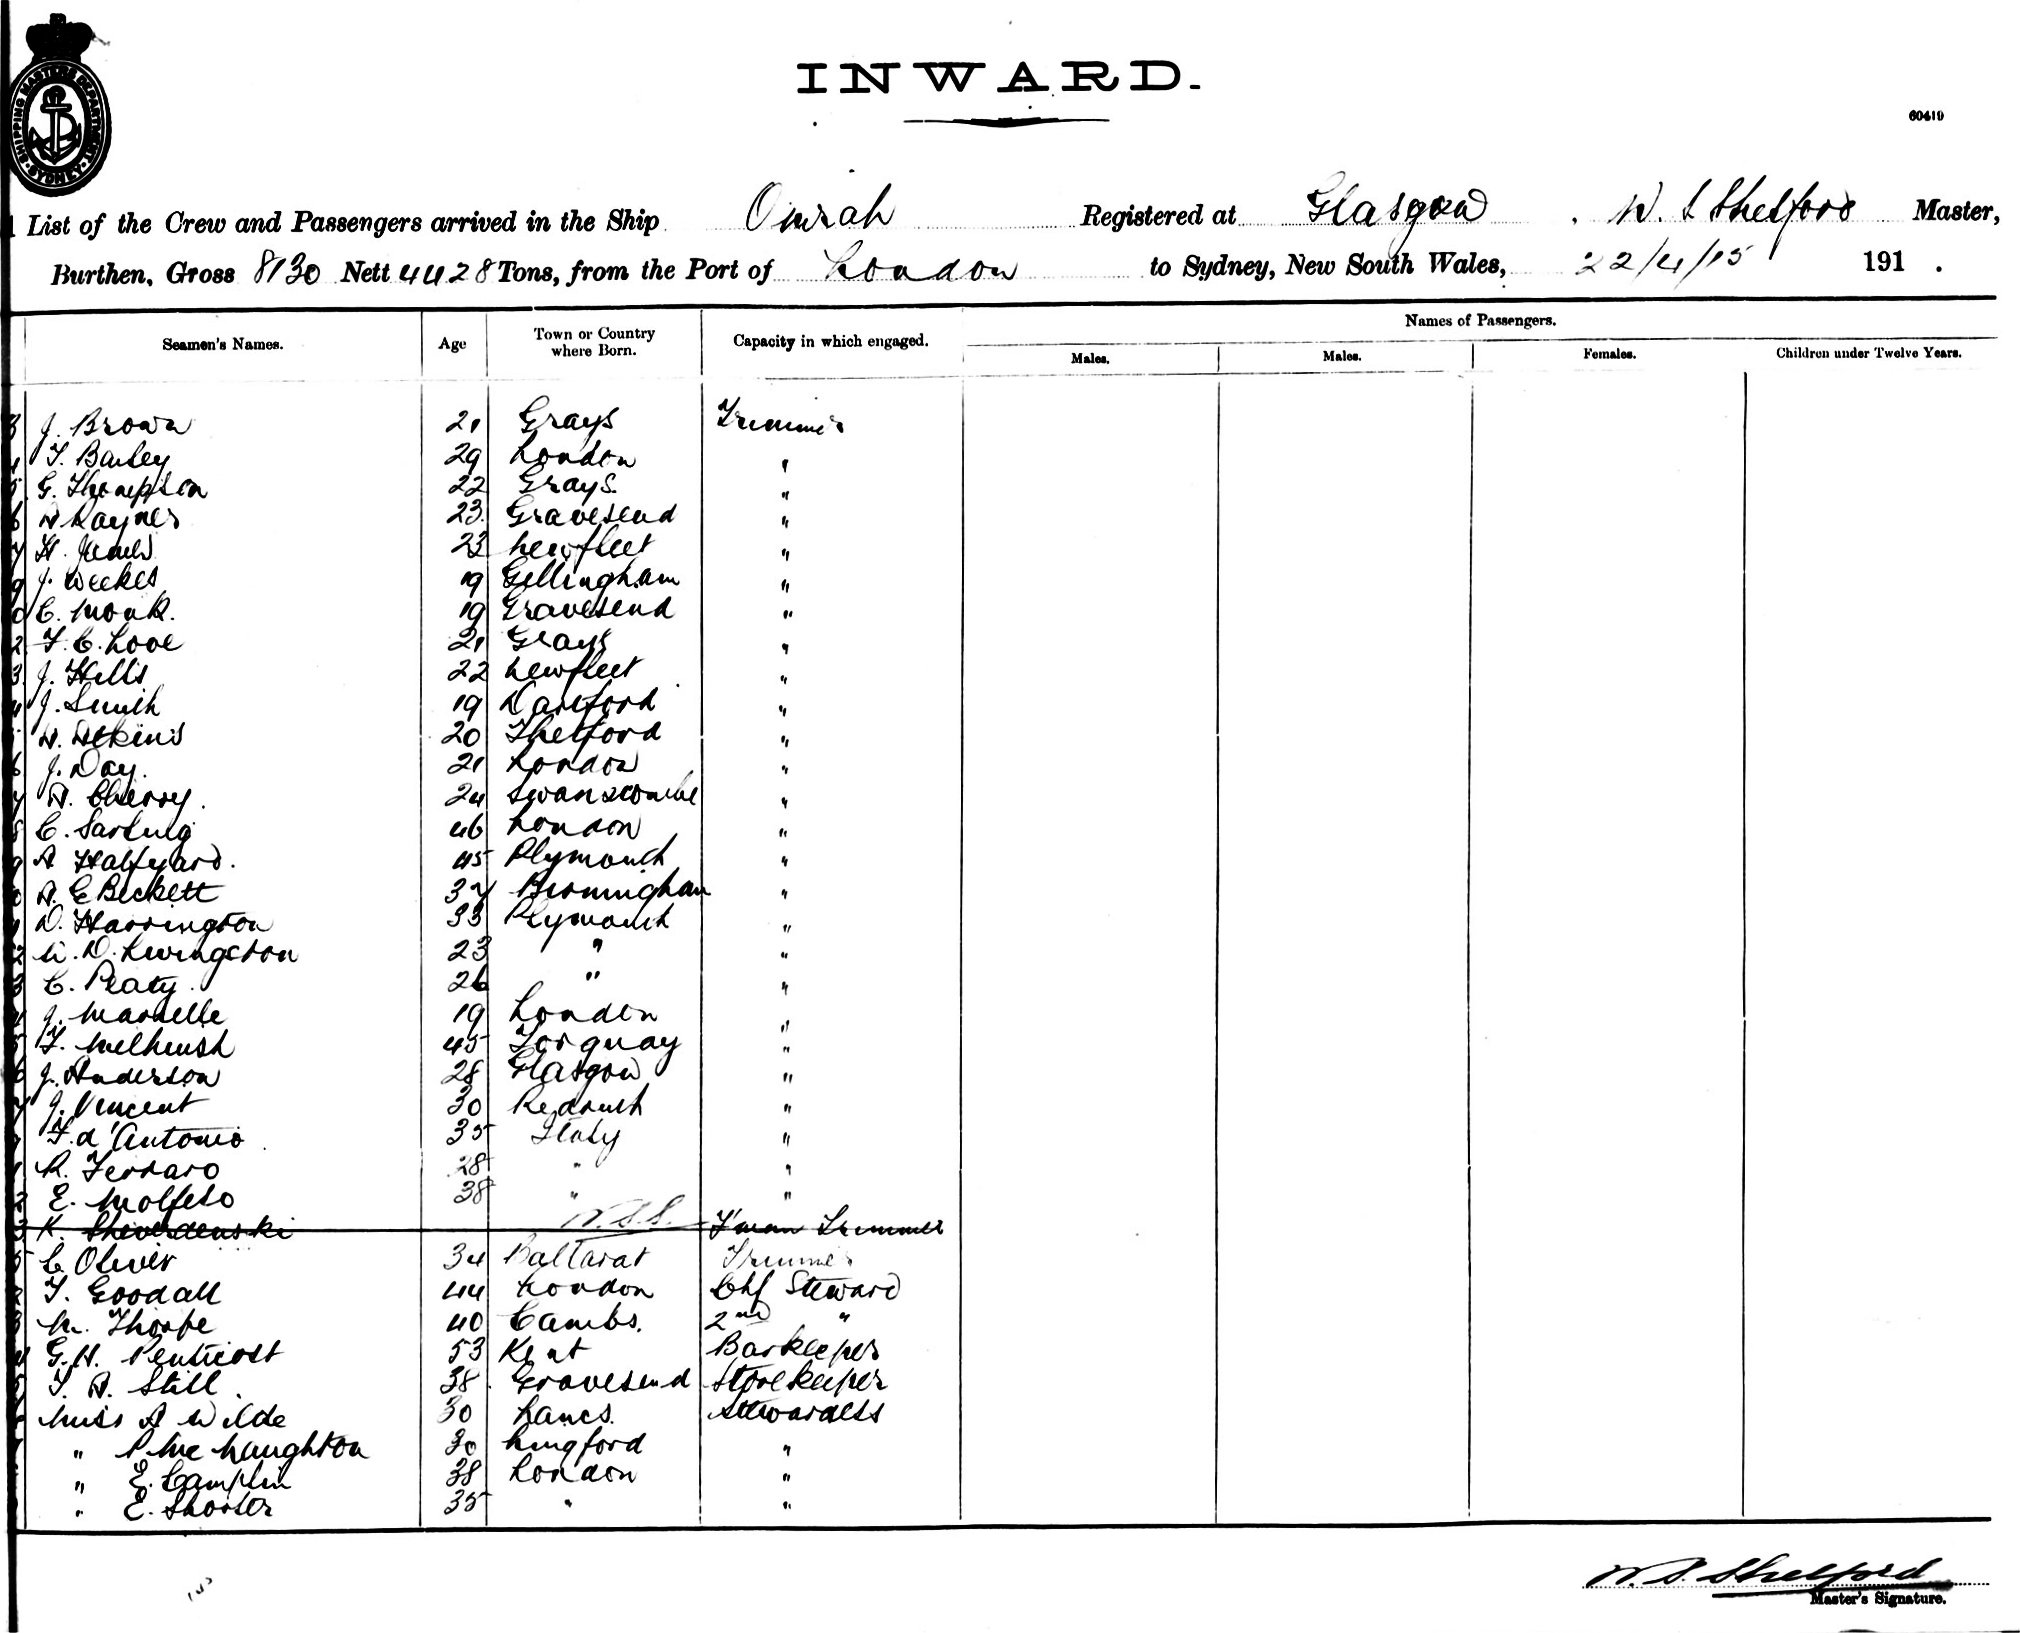 SHIPPING MASTERS DEPARTMENT · SYDNEY ·
INWARD.
60419
List of the Crew and Passengers arrived in the Ship Omrah Registered at Glasgow . W. S Shelford Master,
Burthen, Gross 8130 Nett 4428 Tons, from the Port of London to Sydney, New South Wales, 22/4/15 191 .
Names of Passengers.
Seamen's Names. Age Town or Country where Born. Capacity in which engaged. Males. Males. Females. Children under Twelve Years.
J. Brown 21 Grays Trimmer
T. Bailey 29 London "
G. Thompson 22 Grays. "
Rayner 23. Gravesend "
H. 23 "
J. Weekes 19 Gillingham "
C. Monk. 19 Gravesend "
F. C. Love 21 Grays "
J. Hills 22 "
J. Smith 19 Dartford "
20 Thetford "
J. Day. 21 London "
A. Cherry. 24 Swanscombe "
C. 46 London "
A Halfyard. 45 Plymouth "
A. E Beckett 37 Birmingham "
D. Harrington 33 Plymouth "
D. Livingston 23 " "
C. Peaty. 26 " "
J. 19 London "
F. Melhuish 45 Torquay "
J. Anderson 28 Glasgow "
J. Vincent 30 Redruth "
F. d'Antonio 35 Italy "
R. Ferraro 28 " "
E. 38 " "
K. W.S.S. F'man Trimmer
C. Oliver 34 Ballarat Trimmer
F. Goodall 44 London Chf Steward
M. Thorpe 40 Cambs. 2nd "
G. H. Penticost 53 Kent Barkeeper
A. Still 38. Gravesend Storekeeper
Miss A Wilde 30 Lancs. Stewardess
" McNaughton 30 "
" E. Camplin 38 London "
" E. Shorter 35 " "
W. S. Shelford
Master's Signature.